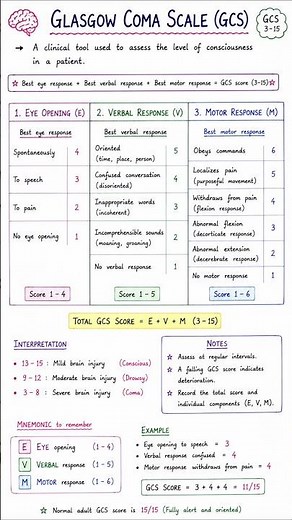 GLASGOW COMA SCALE (GCS)
GCS
3-15
→ A clinical tool used to assess the level of consciousness
in a patient.
☆ Best eye response + Best verbal response + Best motor response = GCS score (3-15) ☆
1. EYE OPENING (E)
Best eye response
Spontaneously 4
To speech 3
To pain 2
No eye opening 1
Score 1 - 4
2. VERBAL RESPONSE (V)
Best verbal response
Oriented 5
(time, place, person)
Confused conversation 4
(disoriented)
Inappropriate words 3
(incoherent)
Incomprehensible sounds 2
(moaning, groaning)
No verbal response 1
Score 1 - 5
3. MOTOR RESPONSE (M)
Best motor response
Obeys commands 6
Localizes pain 5
(purposeful movement)
Withdraws from pain 4
(flexion response)
Abnormal flexion 3
(decorticate response)
Abnormal extension 2
(decerebrate response)
No motor response 1
Score 1 - 6
TOTAL GCS SCORE = E + V + M (3-15)
INTERPRETATION
• 13 - 15 : Mild brain injury (Conscious)
• 9 - 12 : Moderate brain injury (Drowsy)
• 3 - 8 : Severe brain injury (Coma)
NOTES
☆ Assess at regular intervals.
☆ A falling GCS score indicates
deterioration.
☆ Record the total score and
individual components (E, V, M).
MNEMONIC to remember
E EYE opening (1-4)
V VERBAL response (1-5)
M MOTOR response (1-6)
EXAMPLE
• Eye opening to speech = 3
• Verbal response confused = 4
• Motor response withdraws from pain = 4
GCS SCORE = 3 + 4 + 4 = 11/15
☆ Normal adult GCS score is 15/15 (Fully alert and oriented)